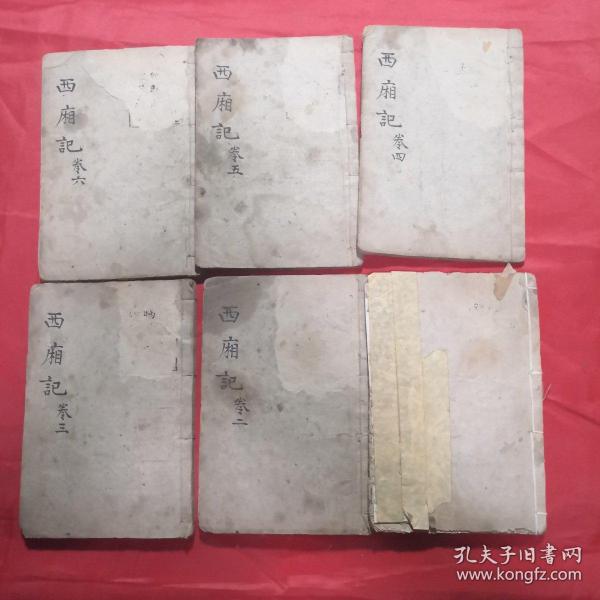 西廂記
卷六
西廂記
卷五
西廂記
卷四
西廂記
卷三
西廂記
卷二
孔夫子旧書网
www.kongfz.com